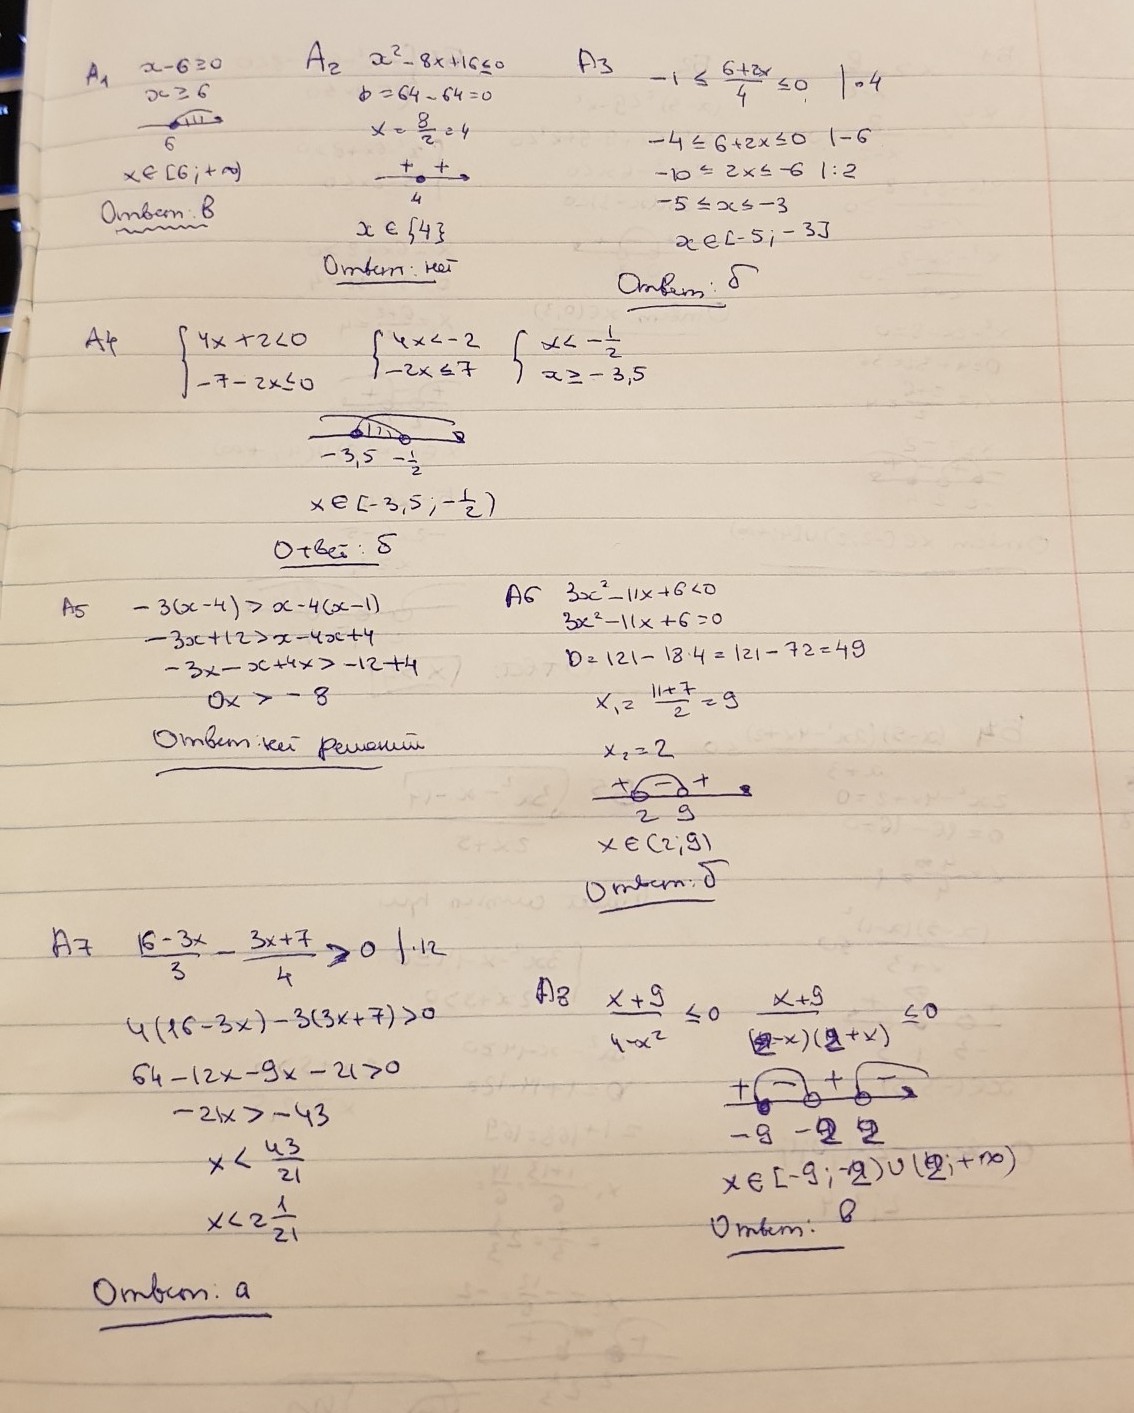 A1 x-6≥0
x≥6
6
x∈[6;+∞)
Ответ: в
A2 x²-8x+16≤0
D=64-64=0
x=8/2=4
+ +
4
x∈{4}
Ответ: нет
A3 -1≤(6+2x)/4≤0 |·4
-4≤6+2x≤0 |-6
-10≤2x≤-6 |:2
-5≤x≤-3
x∈[-5;-3]
Ответ: б
A4 {4x+2<0 {4x<-2 {x<-1/2
{-7-2x≤0 {-2x≤7 {x≥-3,5
-3,5 -1/2
x∈[-3,5;-1/2)
Ответ: б
A5 -3(x-4)>x-4(x-1)
-3x+12>x-4x+4
-3x-x+4x>-12+4
0x>-8
Ответ: нет решений
A6 3x²-11x+6<0
3x²-11x+6=0
D=121-18·4=121-72=49
x₁=(11+7)/2=9
x₂=2
+ - +
2 9
x∈(2;9)
Ответ: б
A7 (16-3x)/3-(3x+7)/4>0 |·12
4(16-3x)-3(3x+7)>0
64-12x-9x-21>0
-21x>-43
x<43/21
x<2 1/21
Ответ: а
A8 (x+9)/(4-x²)≤0 (x+9)/((2-x)(2+x))≤0
+ - + -
-9 -2 2
x∈[-9;-2)∪(2;+∞)
Ответ: в